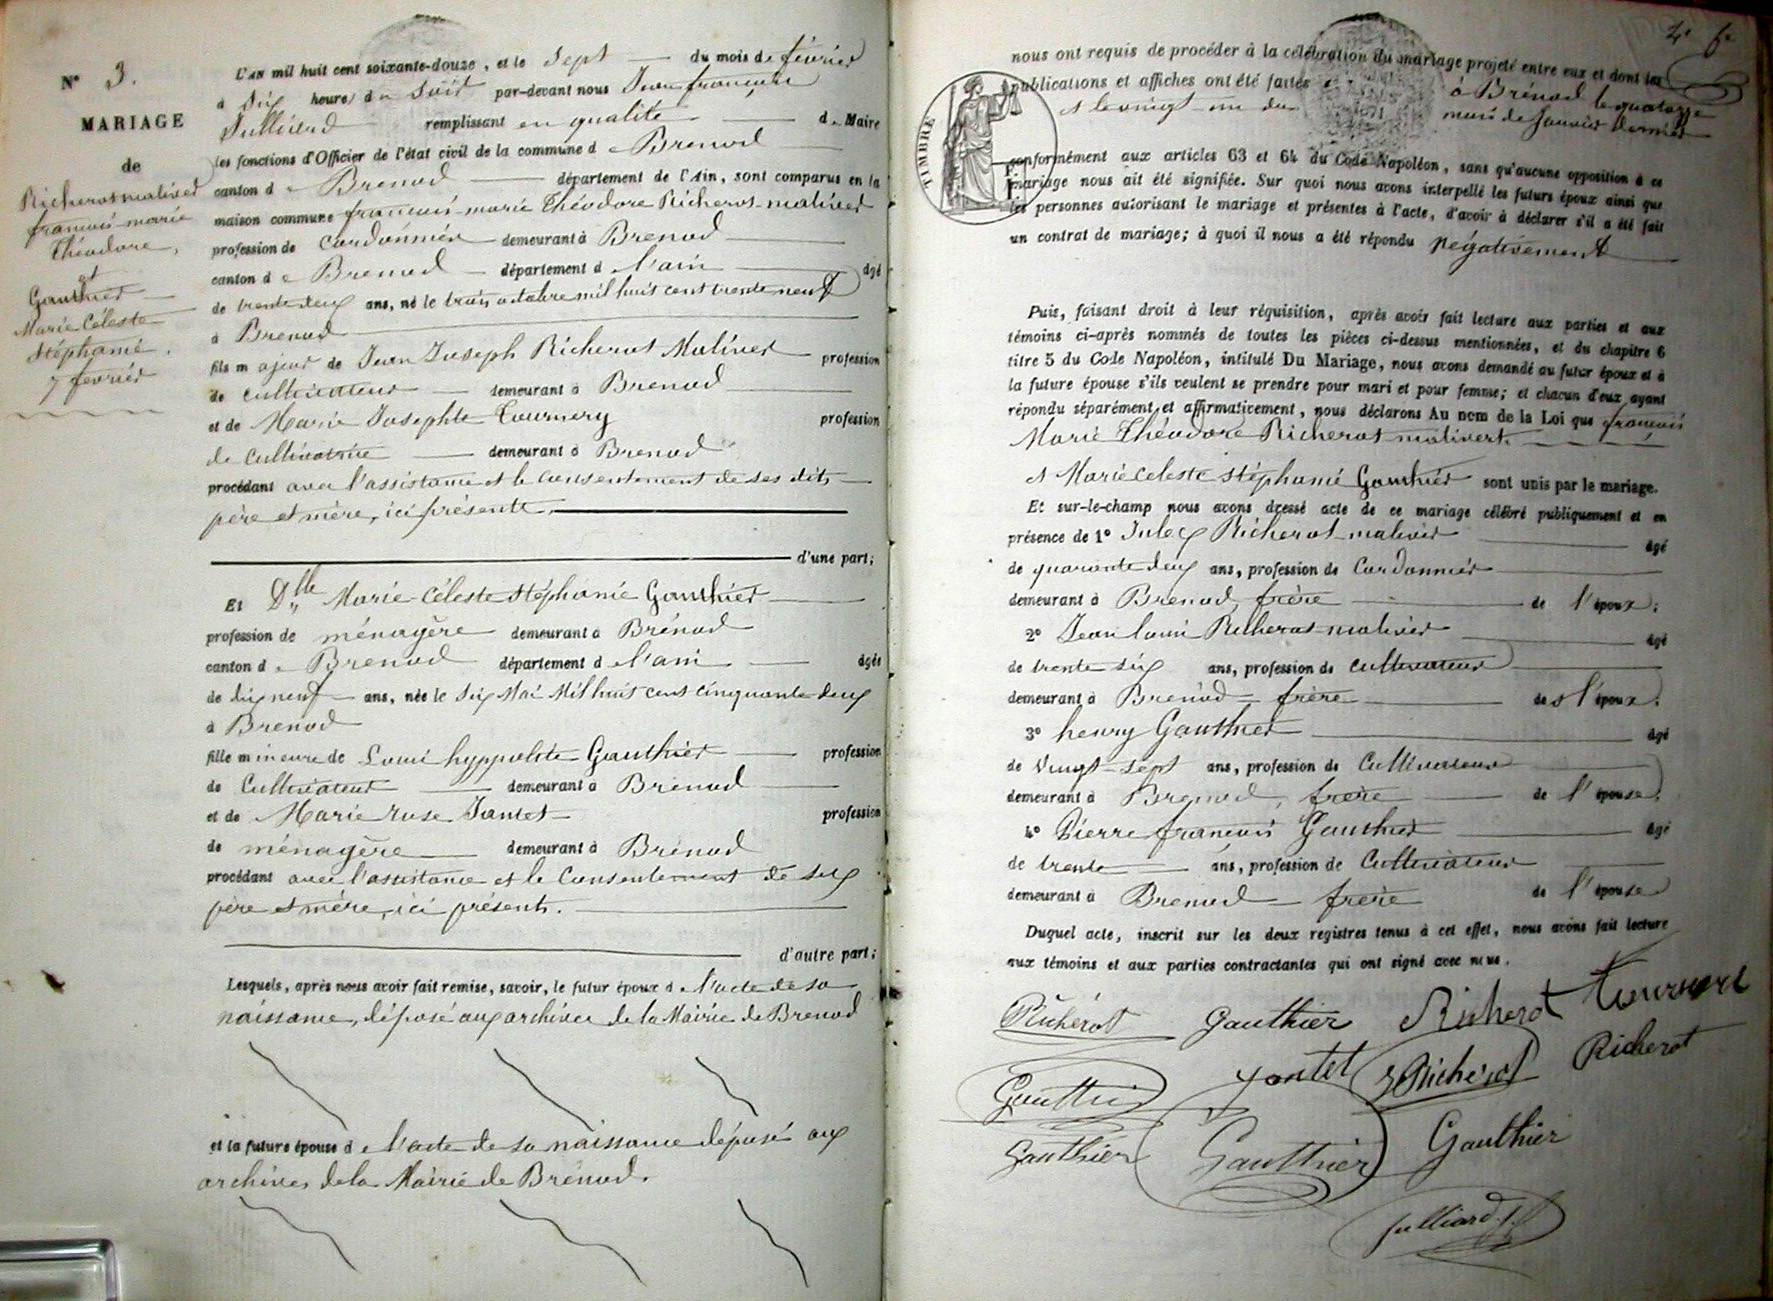 N° 3.
MARIAGE
de
Richerot malivert
françois marie
Théodore,
et
Gauthier
Marie Céleste
Stéphanie.
7 février
L'AN mil huit cent soixante-douze, et le Sept du mois de février
à Six heures du Soir par-devant nous Jean françois
Julliard remplissant en qualité de Maire
les fonctions d'Officier de l'état civil de la commune de Brenod
canton de Brenod département de l'Ain, sont comparus en la
maison commune françois-marie Théodore Richerot-malivert
profession de Cordonnier demeurant à Brenod
canton de Brenod département de l'ain âgé
de trente deux ans, né le trois octobre mil huit cent trente neuf
à Brenod
fils majeur de Jean Joseph Richerot Malivert profession
de cultivateur demeurant à Brenod
et de Marie Josephte Tournery profession
de cultivatrice demeurant à Brenod
procédant avec l'assistance et le consentement de ses dits
père et mère, ici présents.
d'une part;
Et Dlle Marie-Céleste Stéphanie Gauthier
profession de ménagère demeurant à Brénod
canton de Brenod département de l'ain âgée
de dix neuf ans, née le Six Mai Mil huit cent cinquante deux
à Brenod
fille mineure de Louis hyppolite Gauthier profession
de Cultivateur demeurant à Brenod
et de Marie rose Jantet profession
de ménagère demeurant à Brénod
procédant avec l'assistance et le Consentement de ses
père et mère, ici présents.
d'autre part;
Lesquels, après nous avoir fait remise, savoir, le futur époux de l'acte de sa
naissance, déposé aux archives de la Mairie de Brenod
et la future épouse de l'acte de sa naissance déposé aux
archives de la Mairie de Brénod.
nous ont requis de procéder à la célébration du mariage projeté entre eux et dont les
publications et affiches ont été faites à Brénod le quatorze
et le vingt un du mois de Janvier dernier
TIMBRE
conformément aux articles 63 et 64 du Code Napoléon, sans qu'aucune opposition à ce
mariage nous ait été signifiée. Sur quoi nous avons interpellé les futurs époux ainsi que
les personnes autorisant le mariage et présentes à l'acte, d'avoir à déclarer s'il a été fait
un contrat de mariage; à quoi il nous a été répondu négativement
Puis, faisant droit à leur réquisition, après avoir fait lecture aux parties et aux
témoins ci-après nommés de toutes les pièces ci-dessus mentionnées, et du chapitre 6
titre 5 du Code Napoléon, intitulé Du Mariage, nous avons demandé au futur époux et à
la future épouse s'ils veulent se prendre pour mari et pour femme; et chacun d'eux ayant
répondu séparément et affirmativement, nous déclarons Au nom de la Loi que françois
Marie Théodore Richerot malivert.
et Marie Celeste Stéphanie Gauthier sont unis par le mariage.
Et sur-le-champ nous avons dressé acte de ce mariage célébré publiquement et en
présence de 1° Jules Richerot-malivert âgé
de quarante deux ans, profession de Cordonnier
demeurant à Brenod, frère de l'époux;
2° Jean louis Richerot-malivert âgé
de trente six ans, profession de Cultivateur
demeurant à Brénod frère de l'époux.
3° henry Gauthier âgé
de Vingt-sept ans, profession de Cultivateur
demeurant à Brenod, frère de l'épouse.
4° Pierre françois Gauthier âgé
de trente ans, profession de Cultivateur
demeurant à Brenod frère de l'épouse
Duquel acte, inscrit sur les deux registres tenus à cet effet, nous avons fait lecture
aux témoins et aux parties contractantes qui ont signé avec nous.
Richerot Gauthier Richerot
Gauthier Jantet Richerot Richerot
Gauthier Gauthier Gauthier
Julliard J.